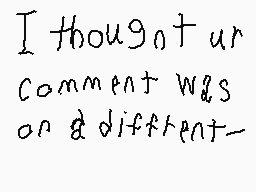 I thought ur
comment was
on a different-